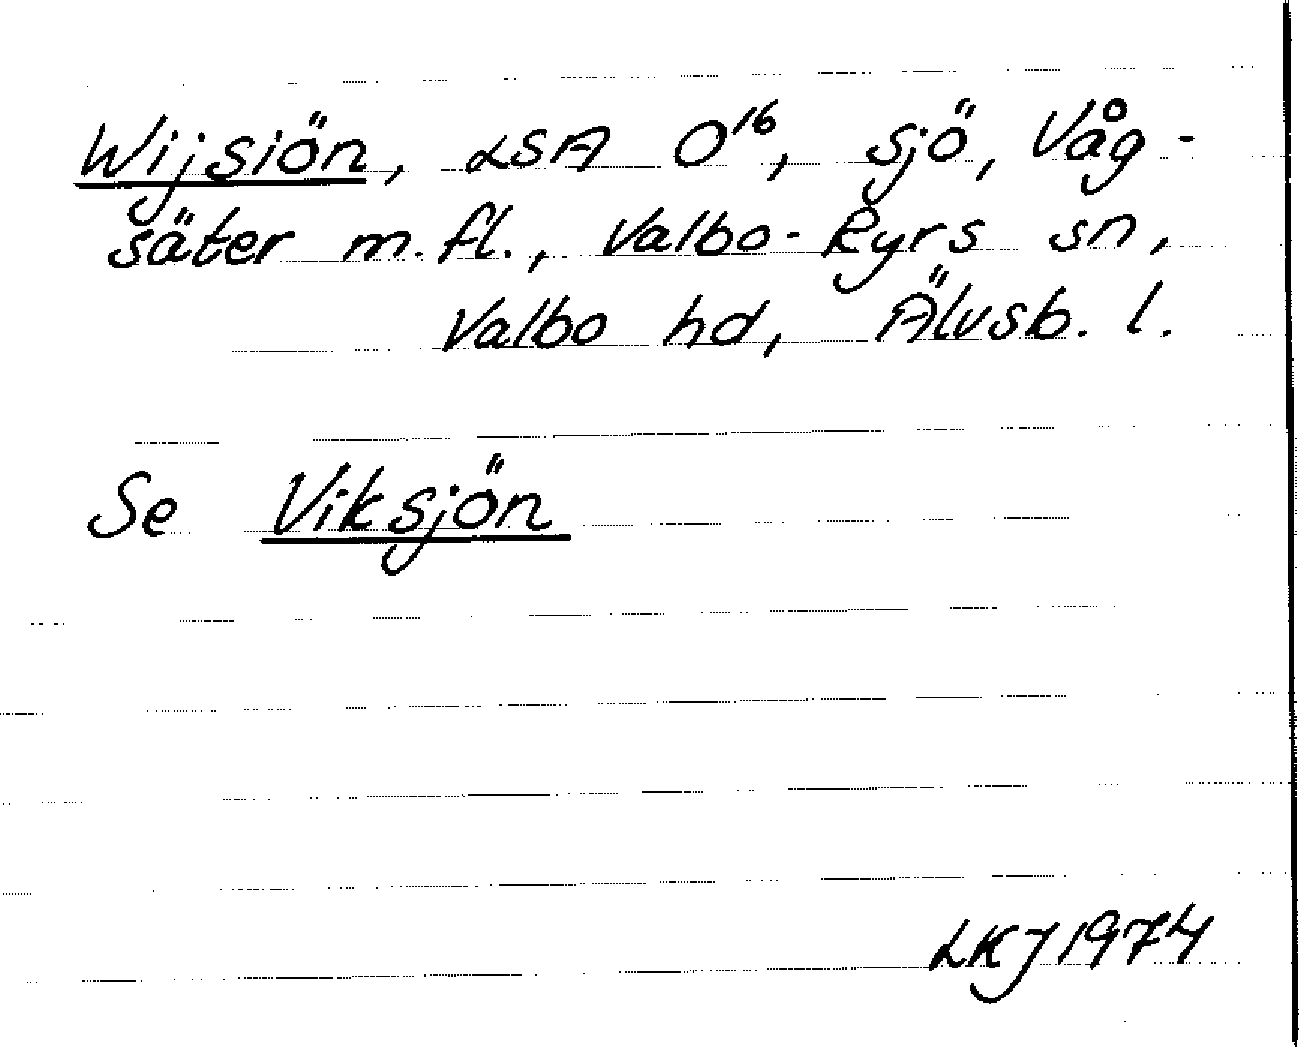 Wijsiön, LSA O¹⁶, sjö, Våg-
säter m.fl., Valbo-Ryrs sn,
Valbo hd, Älvsb. l.
Se Viksjön
LKJ 1974